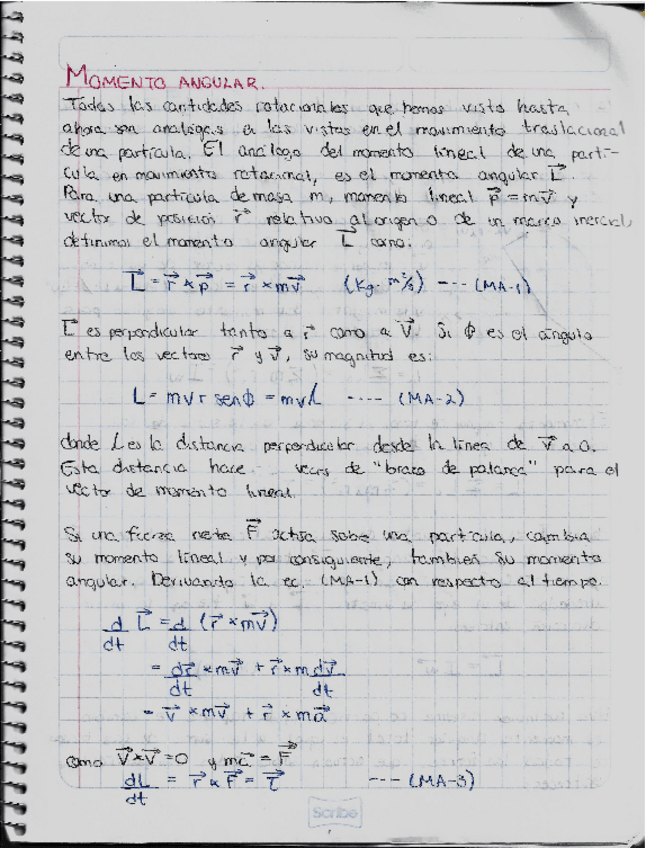 MOMENTO ANGULAR.
Todas las cantidades rotacionales que hemos visto hasta
ahora son análogas a las vistas en el movimiento traslacional
de una partícula. El análogo del momento lineal de una partí-
cula en movimiento rotacional, es el momento angular L⃗.
Para una partícula de masa m, momento lineal p⃗=mv⃗ y
vector de posición r⃗ relativo al origen o de un marco inercial,
definimos el momento angular L⃗ como:
L⃗ = r⃗ × p⃗ = r⃗ × mv⃗ (Kg· m²/s) --- (MA-1)
L⃗ es perpendicular tanto a r⃗ como a V⃗. Si ϕ es el ángulo
entre los vectores r⃗ y v⃗, su magnitud es:
L = mvr senϕ = mvl ---- (MA-2)
donde l es la distancia perpendicular desde la línea de v⃗ a o.
Esta distancia hace veces de "brazo de palanca" para el
vector de momento lineal.
Si una fuerza neta F⃗ actúa sobe una partícula, cambia
su momento lineal y por consiguiente, tambien su momento
angular. Derivando la ec. (MA-1) con respecto al tiempo.
d/dt L⃗ = d/dt (r⃗ × mv⃗)
= dr⃗/dt × mv⃗ + r⃗ × m dv⃗/dt
= v⃗ × mv⃗ + r⃗ × ma⃗
como V⃗×V⃗=0 y ma⃗ = F⃗
dL/dt = r⃗ × F⃗ = τ⃗ --- (MA-3)
Scribe